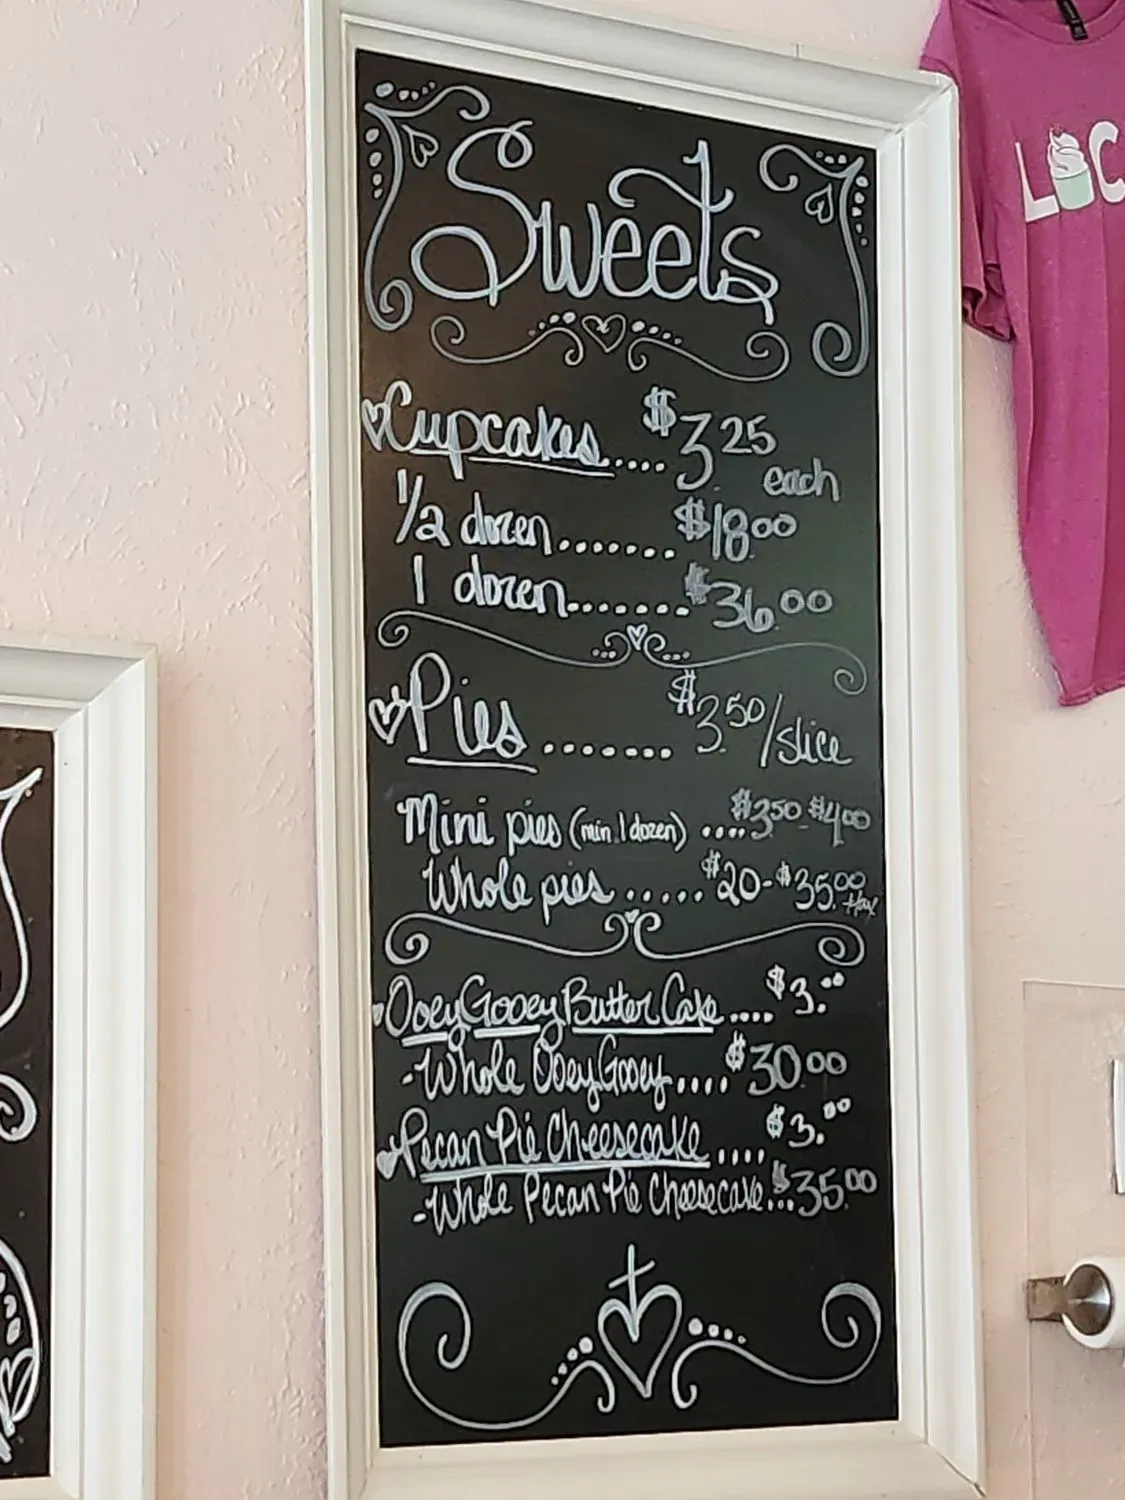 Sweets
Cupcakes.... $3.25 each
1/2 dozen....... $18.00
1 dozen....... $36.00
Pies ....... $3.50/slice
Mini pies (min. 1 dozen) .... $3.50-$4.00
Whole pies ..... $20-$35.00 +tax
Ooey Gooey Butter Cake .... $3.00
-Whole Ooey Gooey.... $30.00
Pecan Pie Cheesecake .... $3.00
-Whole Pecan Pie Cheesecake... $35.00